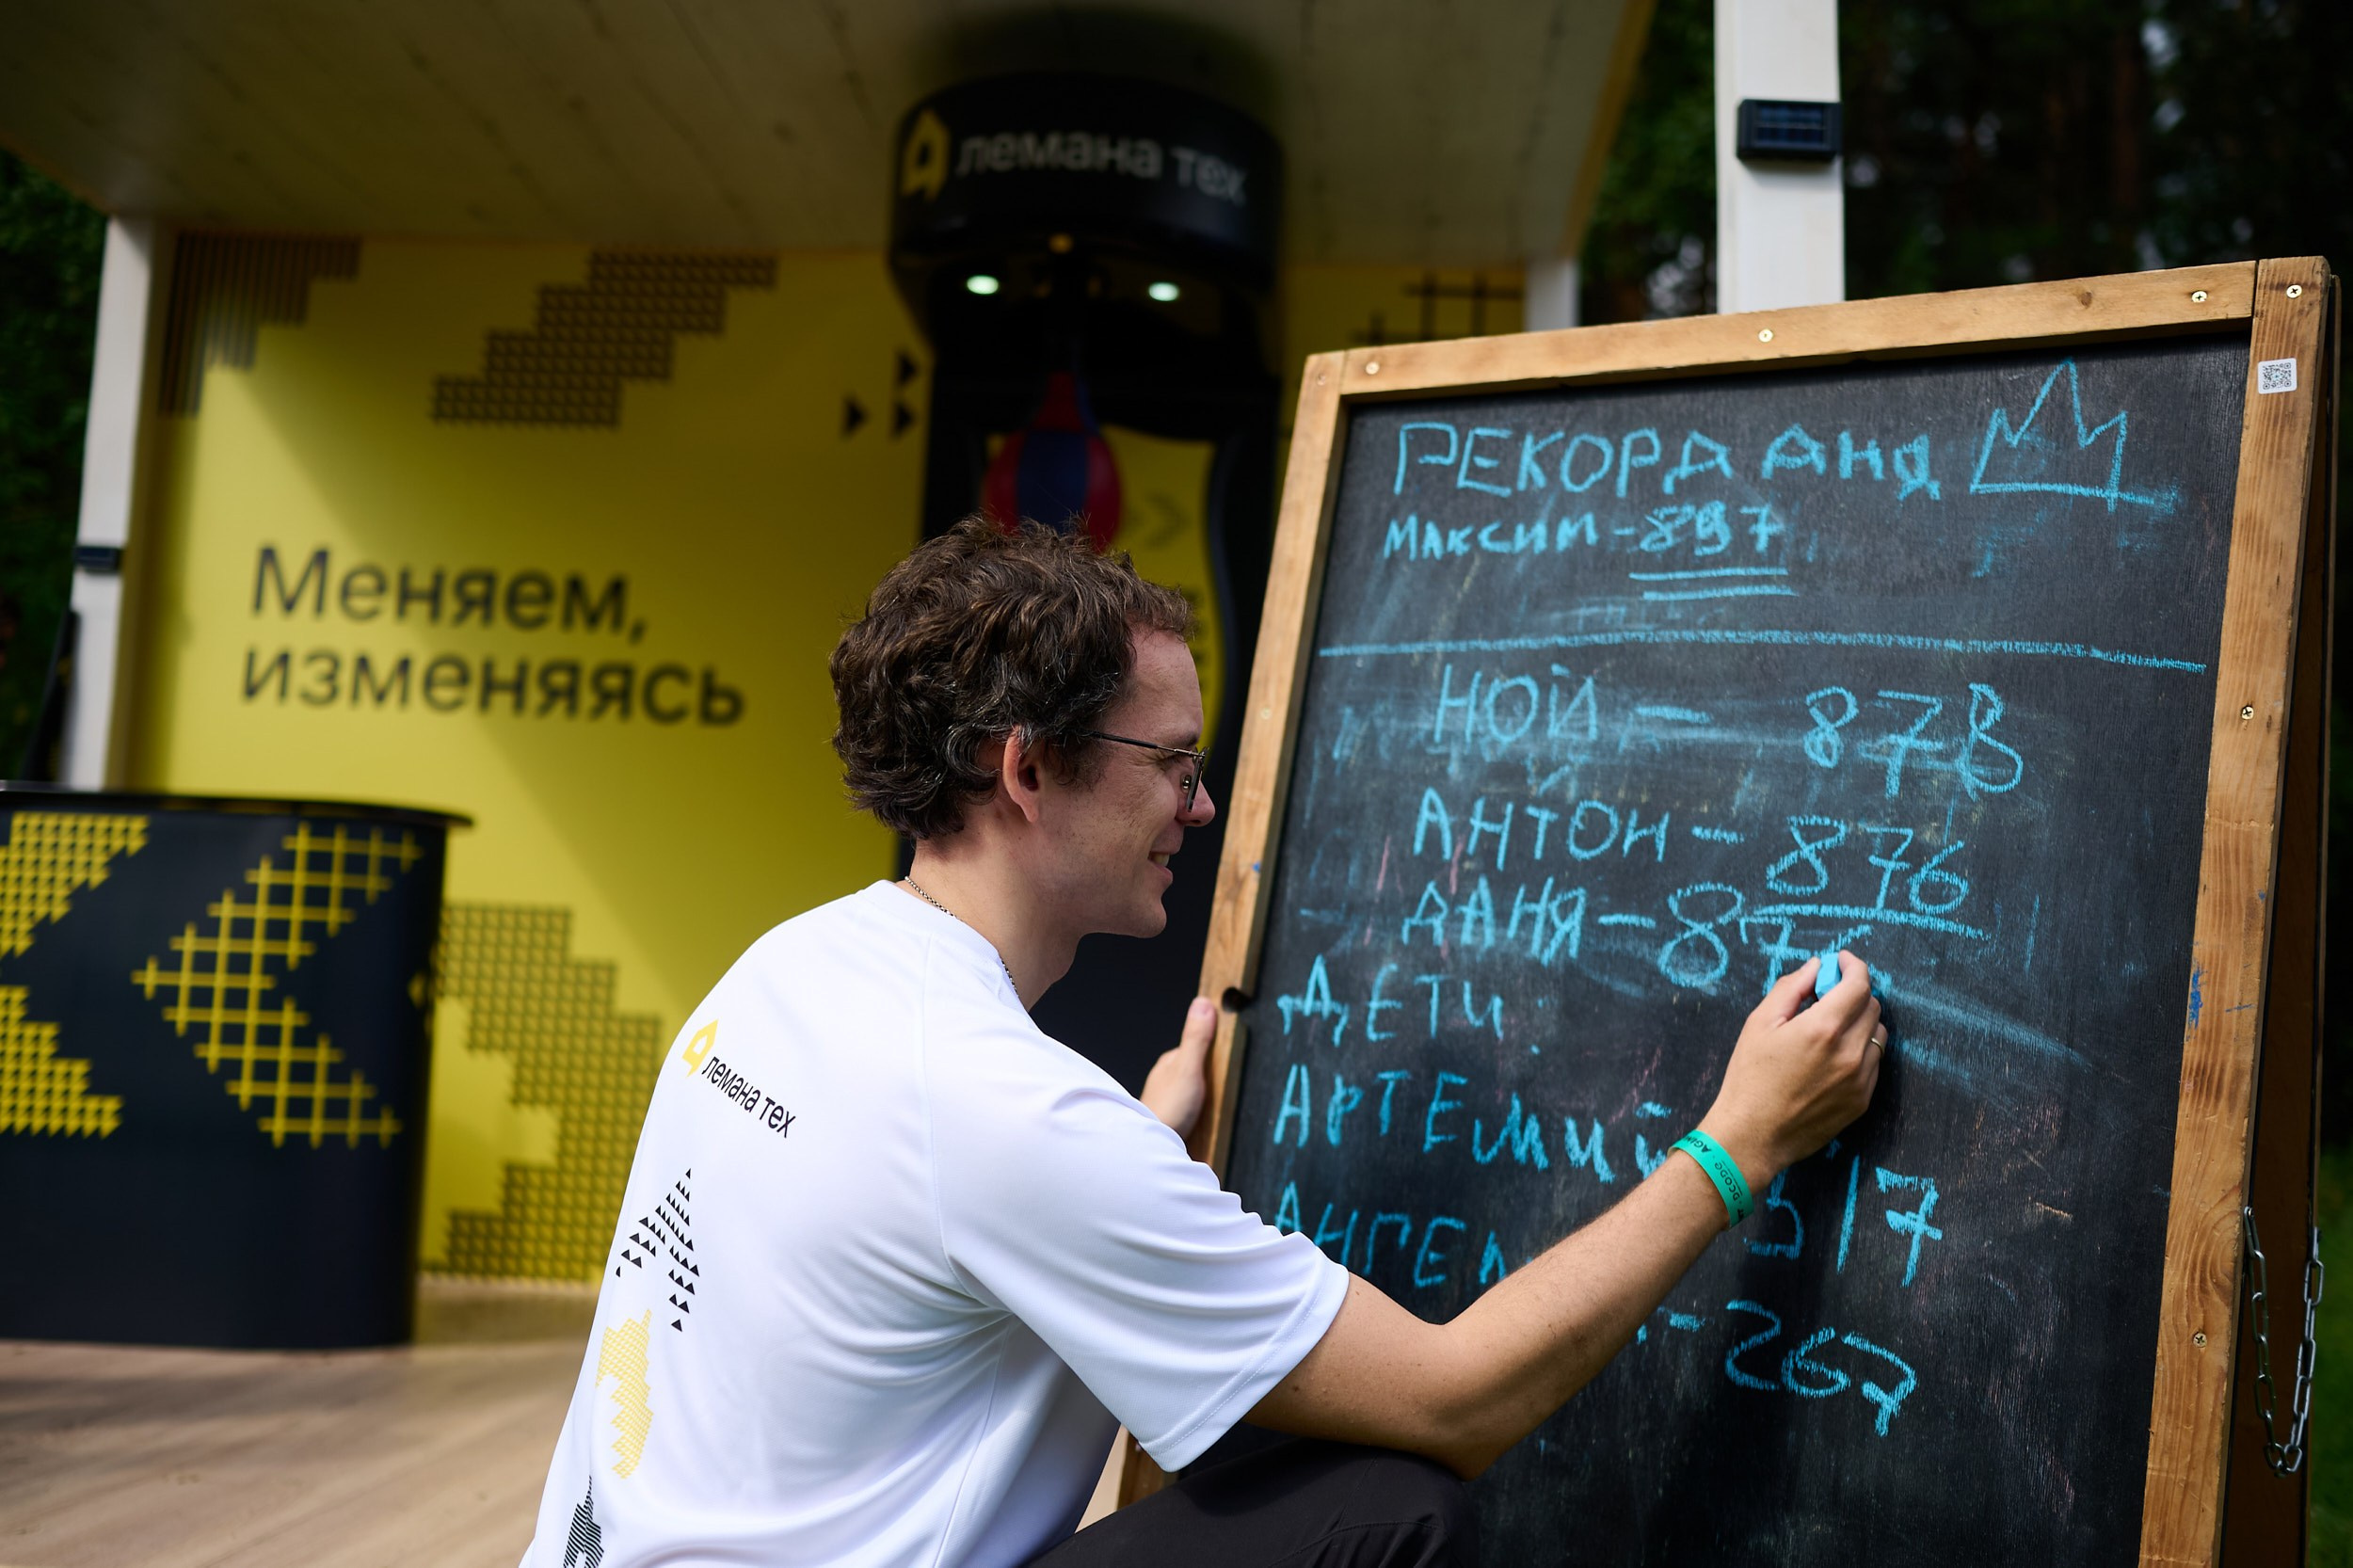 лемана тех
Меняем,
изменяясь
РЕКОРД ДНЯ
МАКСИМ - 897
НОЙ - 878
АНТОН - 876
ДАНЯ - 876
ДЕТИ:
АРТЕМИЙ
517
АНГЕЛ
- 267
лемана тех